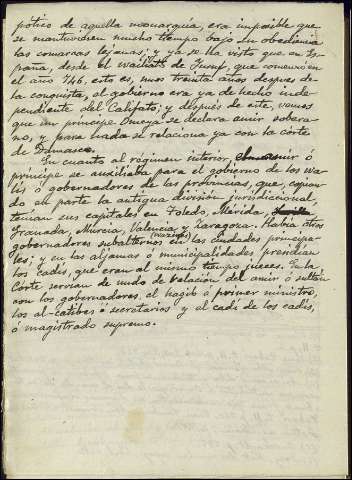 pótico de aquella monarquía, era imposible que
se mantuviesen mucho tiempo bajo su obediencia
las comarcas lejanas; y ya se ha visto que en Es-
paña, desde el waliato de Jusuf, que comenzó en
el año 746, esto es, unos treinta años despues de
la conquista, el gobierno era ya de hecho inde-
pendiente del Califato; y después de este, vemos
que un príncipe Omeya se declara amir sobera-
no, y para nada se relaciona ya con la corte
de Damasco.
En cuanto al régimen interior, amir ó
príncipe se auxiliaba para el gobierno de los wa-
lis ó gobernadores de las provincias, que,
do en parte la antigua división jurisdiccional,
tenian sus capitales en Toledo, Mérida,
Granada, Murcia, Valencia y Zaragoza. Habia otros
gobernadores subalternos (wazires) en las ciudades principa-
les; y en las aljamas ó municipalidades presidian
los cadis, que eran al mismo tiempo jueces. En la
Corte servian de nudo de relación del amir ó sultán
con los gobernadores, el hagib ó primer ministro,
los al-catibes ó secretarios y el cadí de los cadis,
ó magistrado supremo.